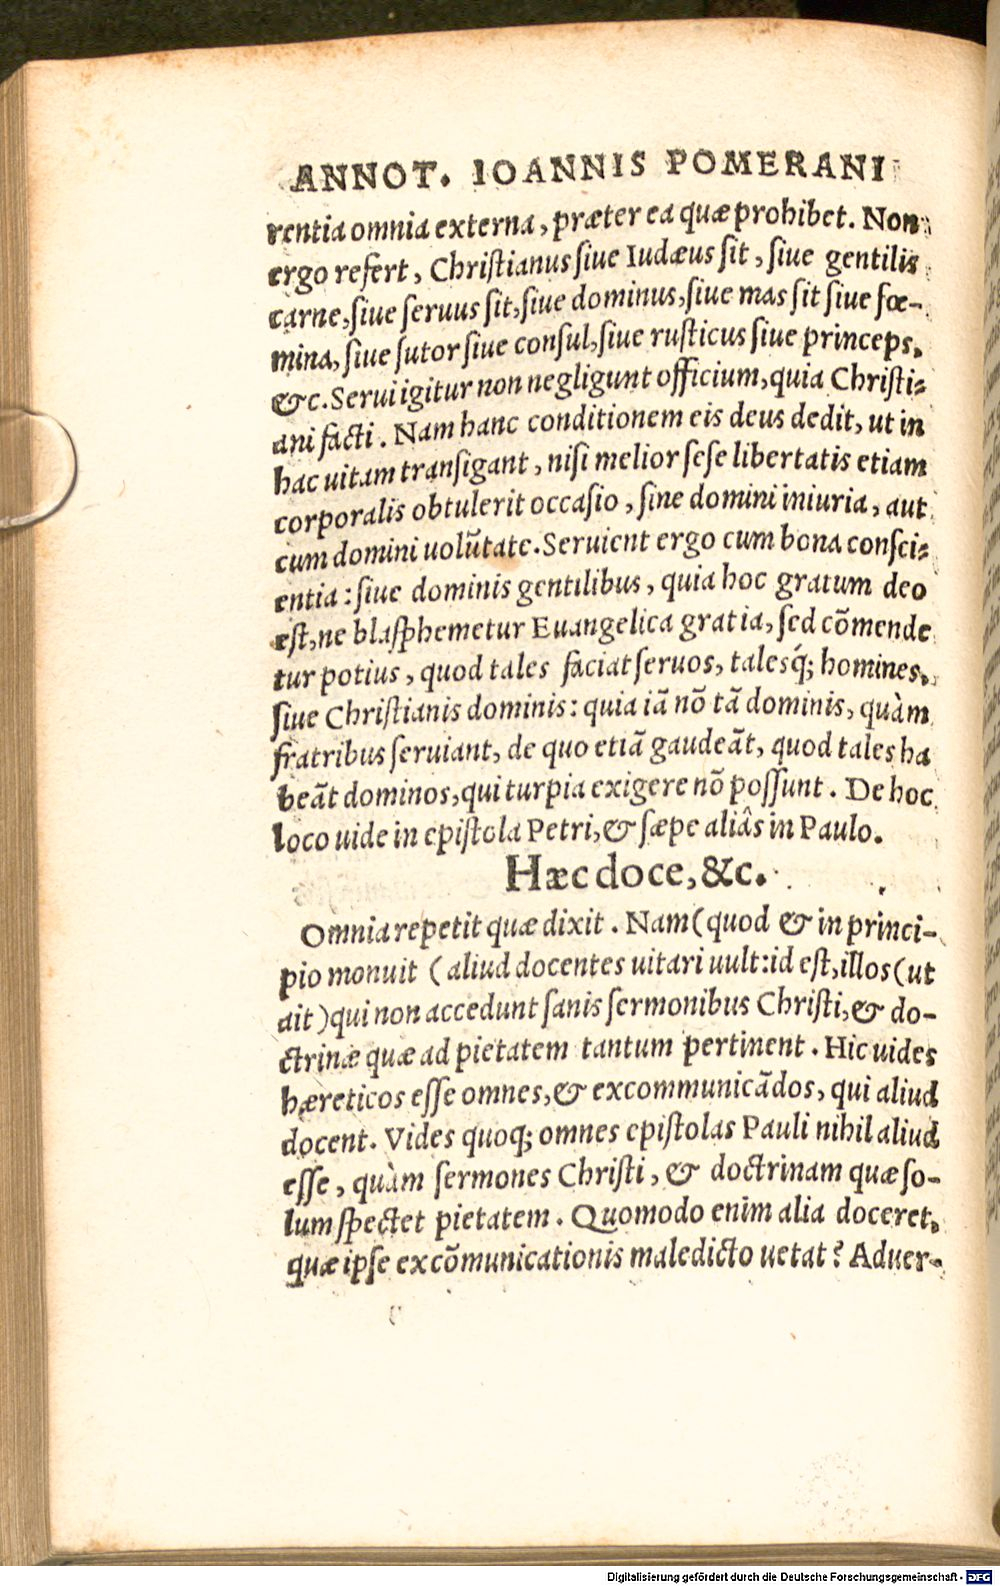 ANNOT. IOANNIS POMERANI
rentia omnia externa, præter ea quæ prohibet. Non
ergo refert, Chriſtianus ſiue Iudæus ſit, ſiue gentilis
carne, ſiue ſeruus ſit, ſiue dominus, ſiue mas ſit ſiue fœ-
mina, ſiue ſutor ſiue conſul, ſiue ruſticus ſiue princeps,
&c. Serui igitur non negligunt officium, quia Chriſti-
ani facti. Nam hanc conditionem eis deus dedit, ut in
hac uitam tranſigant, niſi melior ſeſe libertatis etiam
corporalis obtulerit occaſio, ſine domini iniuria, aut
cum domini uolũtate. Seruient ergo cum bona conſci-
entia: ſiue dominis gentilibus, quia hoc gratum deo
eſt, ne blaſphemetur Euangelica gratia, ſed cõmende
tur potius, quod tales faciat ſeruos, talesq́; homines,
ſiue Chriſtianis dominis: quia iã nõ tã dominis, quàm
fratribus ſeruiant, de quo etiã gaudeãt, quod tales ha
beãt dominos, qui turpia exigere nõ poſſunt. De hoc
loco uide in epiſtola Petri, & ſæpe aliâs in Paulo.
Hæc doce, &c.
Omnia repetit quæ dixit. Nam (quod & in princi-
pio monuit ( aliud docentes uitari uult: id eſt, illos (ut
ait) qui non accedunt ſanis ſermonibus Chriſti, & do-
ctrinæ quæ ad pietatem tantum pertinent. Hic uides
hæreticos eſſe omnes, & excommunicãdos, qui aliud
docent. Vides quoq; omnes epiſtolas Pauli nihil aliud
eſſe, quàm ſermones Chriſti, & doctrinam quæ ſo-
lum ſpectet pietatem. Quomodo enim alia doceret,
quæ ipſe excõmunicationis maledicto uetat? Aduer-
Digitalisierung gefördert durch die Deutsche Forschungsgemeinschaft - DFG